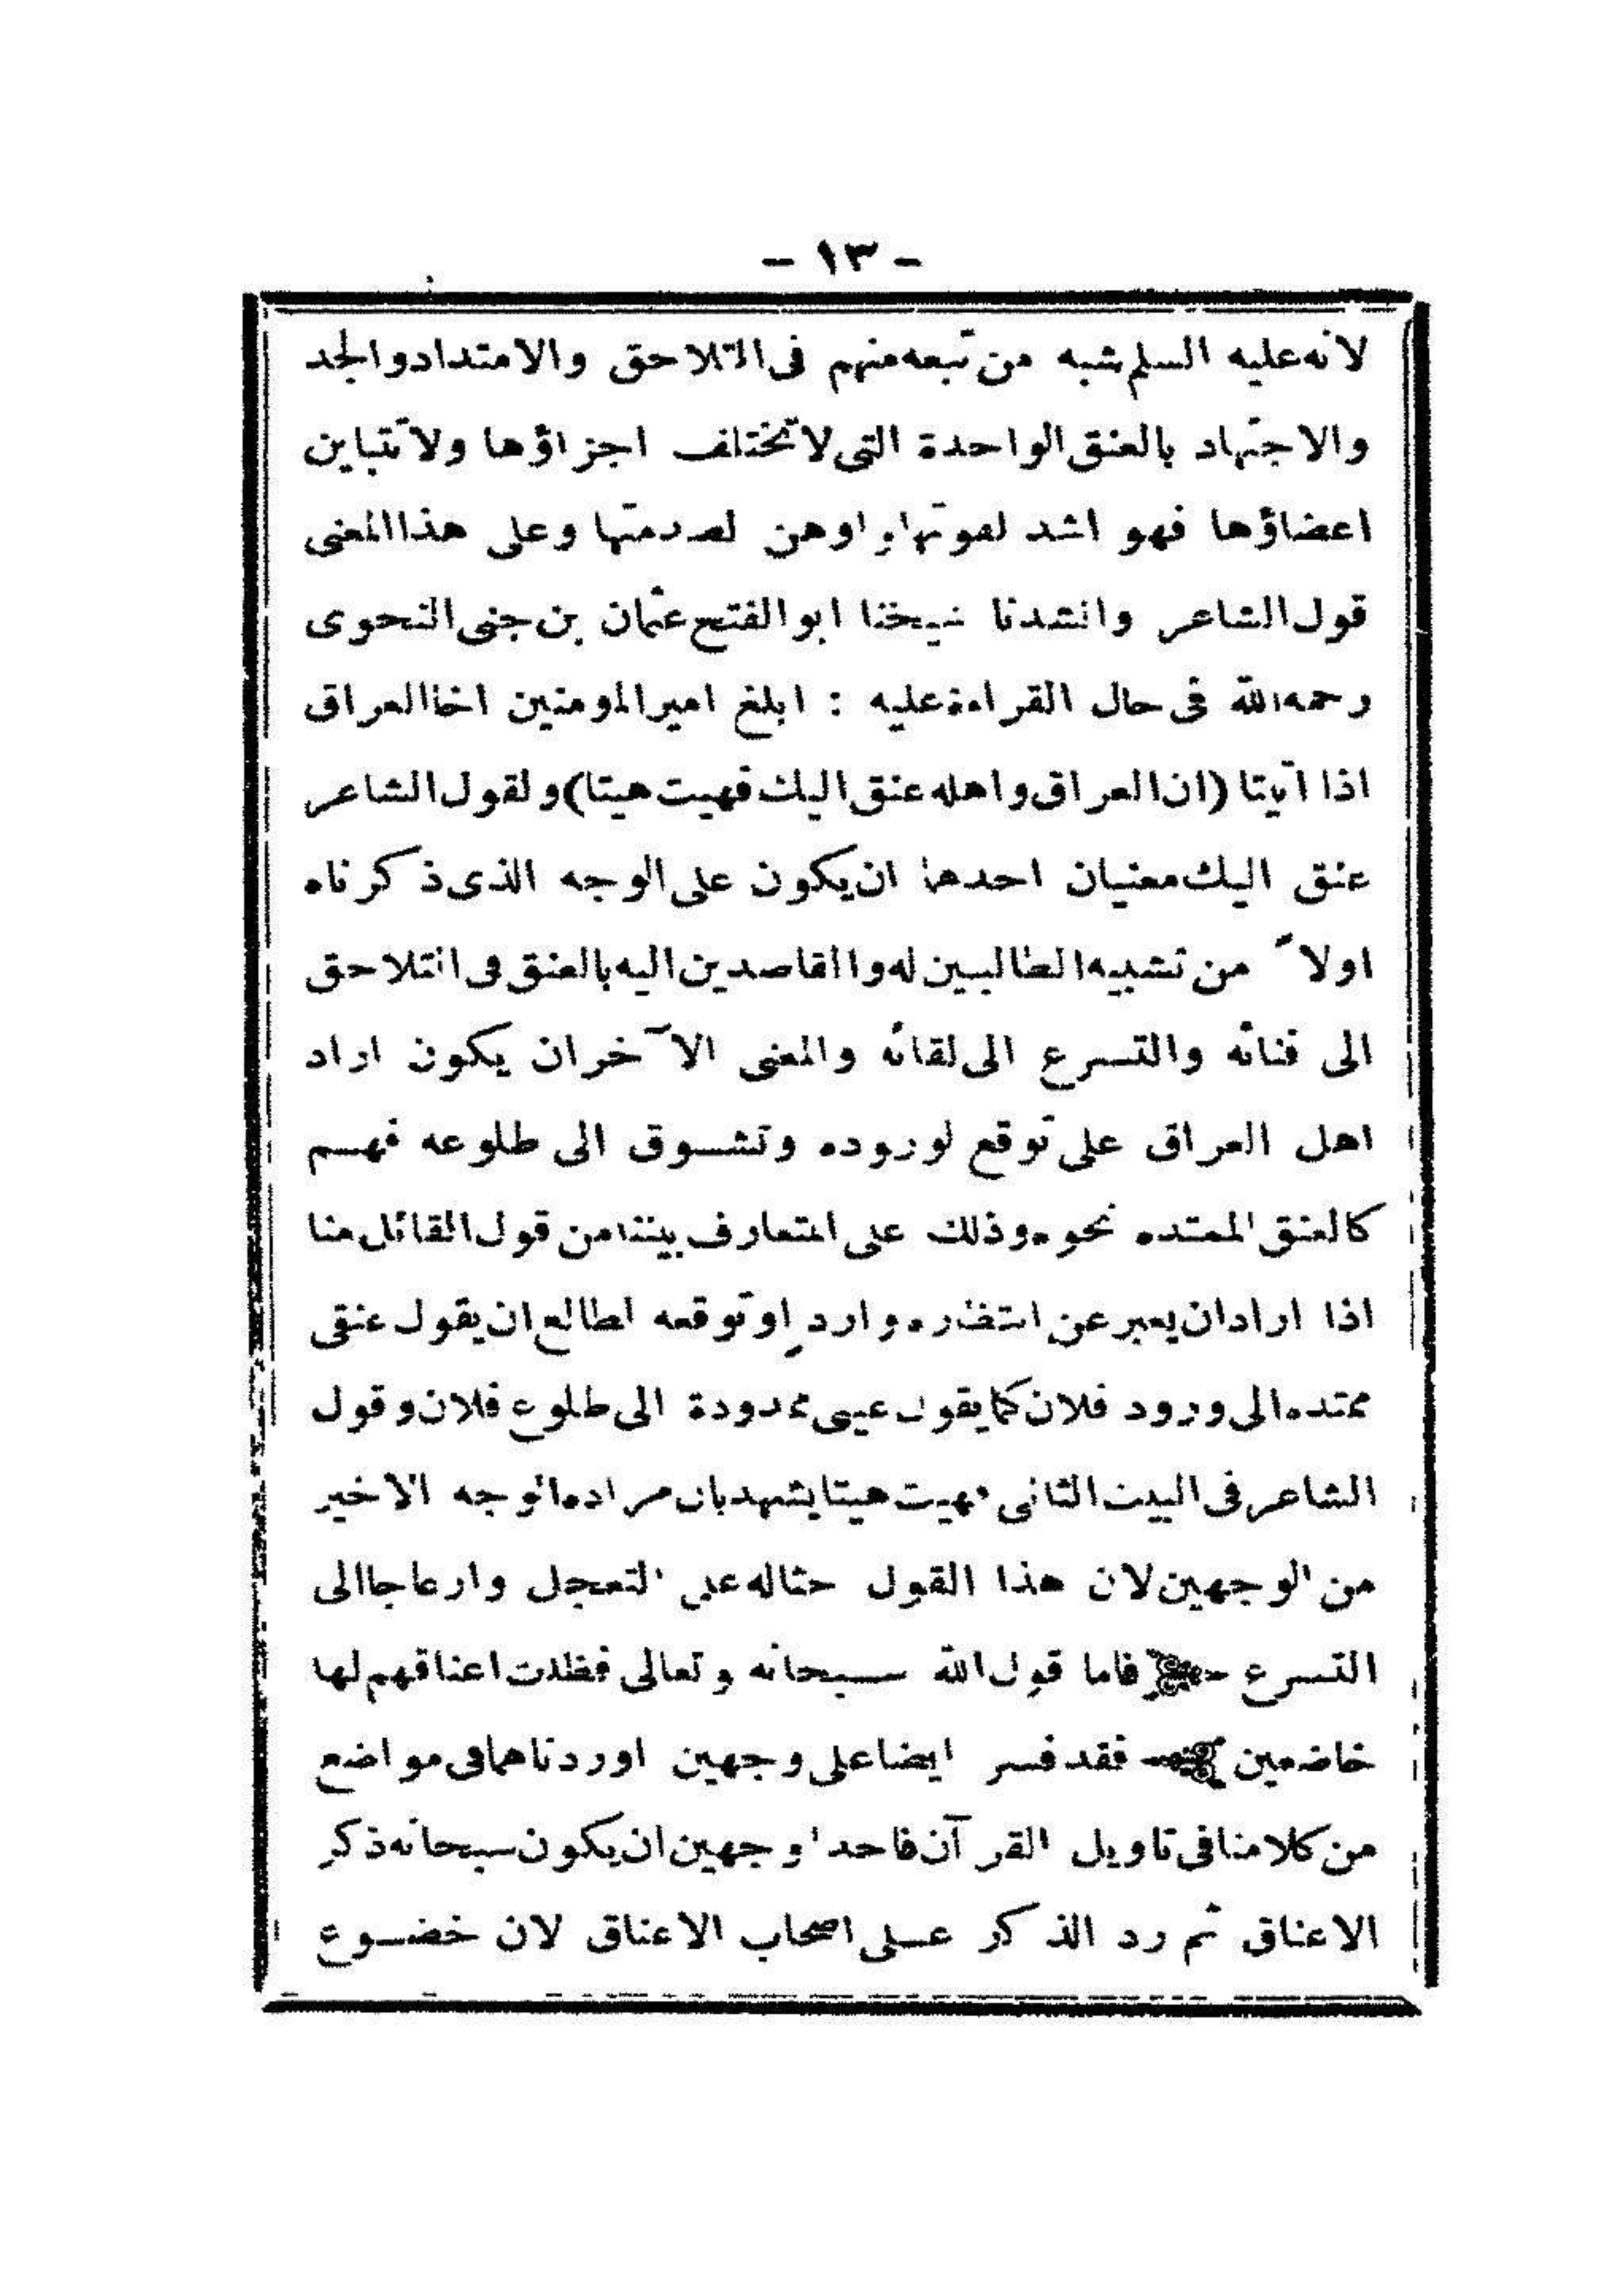 - ١٣ -
لانه عليه السلم شبه من تبعه منهم فى التلاحق والامتداد والجد
والاجتهاد بالعنق الواحدة التى لا تختلف اجزاؤها ولا تتباين
اعضاؤها فهو اشد لقوتها واوهن لصدمتها وعلى هذا المعنى
قول الشاعر وانشدنا شيخنا ابو الفتح عثمان بن جنى النحوى
رحمه الله فى حال القراءة عليه : ابلغ امير المومنين اخا العراق
اذا اتيتا (ان العراق واهله عنق اليك فهيت هيتا) ولقول الشاعر
عنق اليك معنيان احدهما ان يكون على الوجه الذى ذكرناه
اولاً من تشبيه الطالبين له والقاصدين اليه بالعنق فى التلاحق
الى فنائه والتسرع الى لقائه والمعنى الآخر ان يكون اراد
اهل العراق على توقع لوروده وتشوق الى طلوعه فهم
كالعنق الممتده نحوه وذلك على المتعارف بيننا من قول القائل منا
اذا اراد ان يعبر عن انتظاره وارد او توقعه لطالع ان يقول عنقى
ممتده الى ورود فلان كما يقول عينى ممدودة الى طلوع فلان وقول
الشاعر فى البيت الثانى فهيت هيتا يشهد بان مراده الوجه الاخير
من الوجهين لان هذا القول حثاله على التعجل وازعاجا الى
التسرع فاما قول الله سبحانه وتعالى فظلت اعناقهم لها
خاضعين فقد فسر ايضا على وجهين اوردناهما فى مواضع
من كلامنا فى تاويل القرآن فاحد الوجهين ان يكون سبحانه ذكر
الاعناق ثم رد الذكر على اصحاب الاعناق لان خضوع